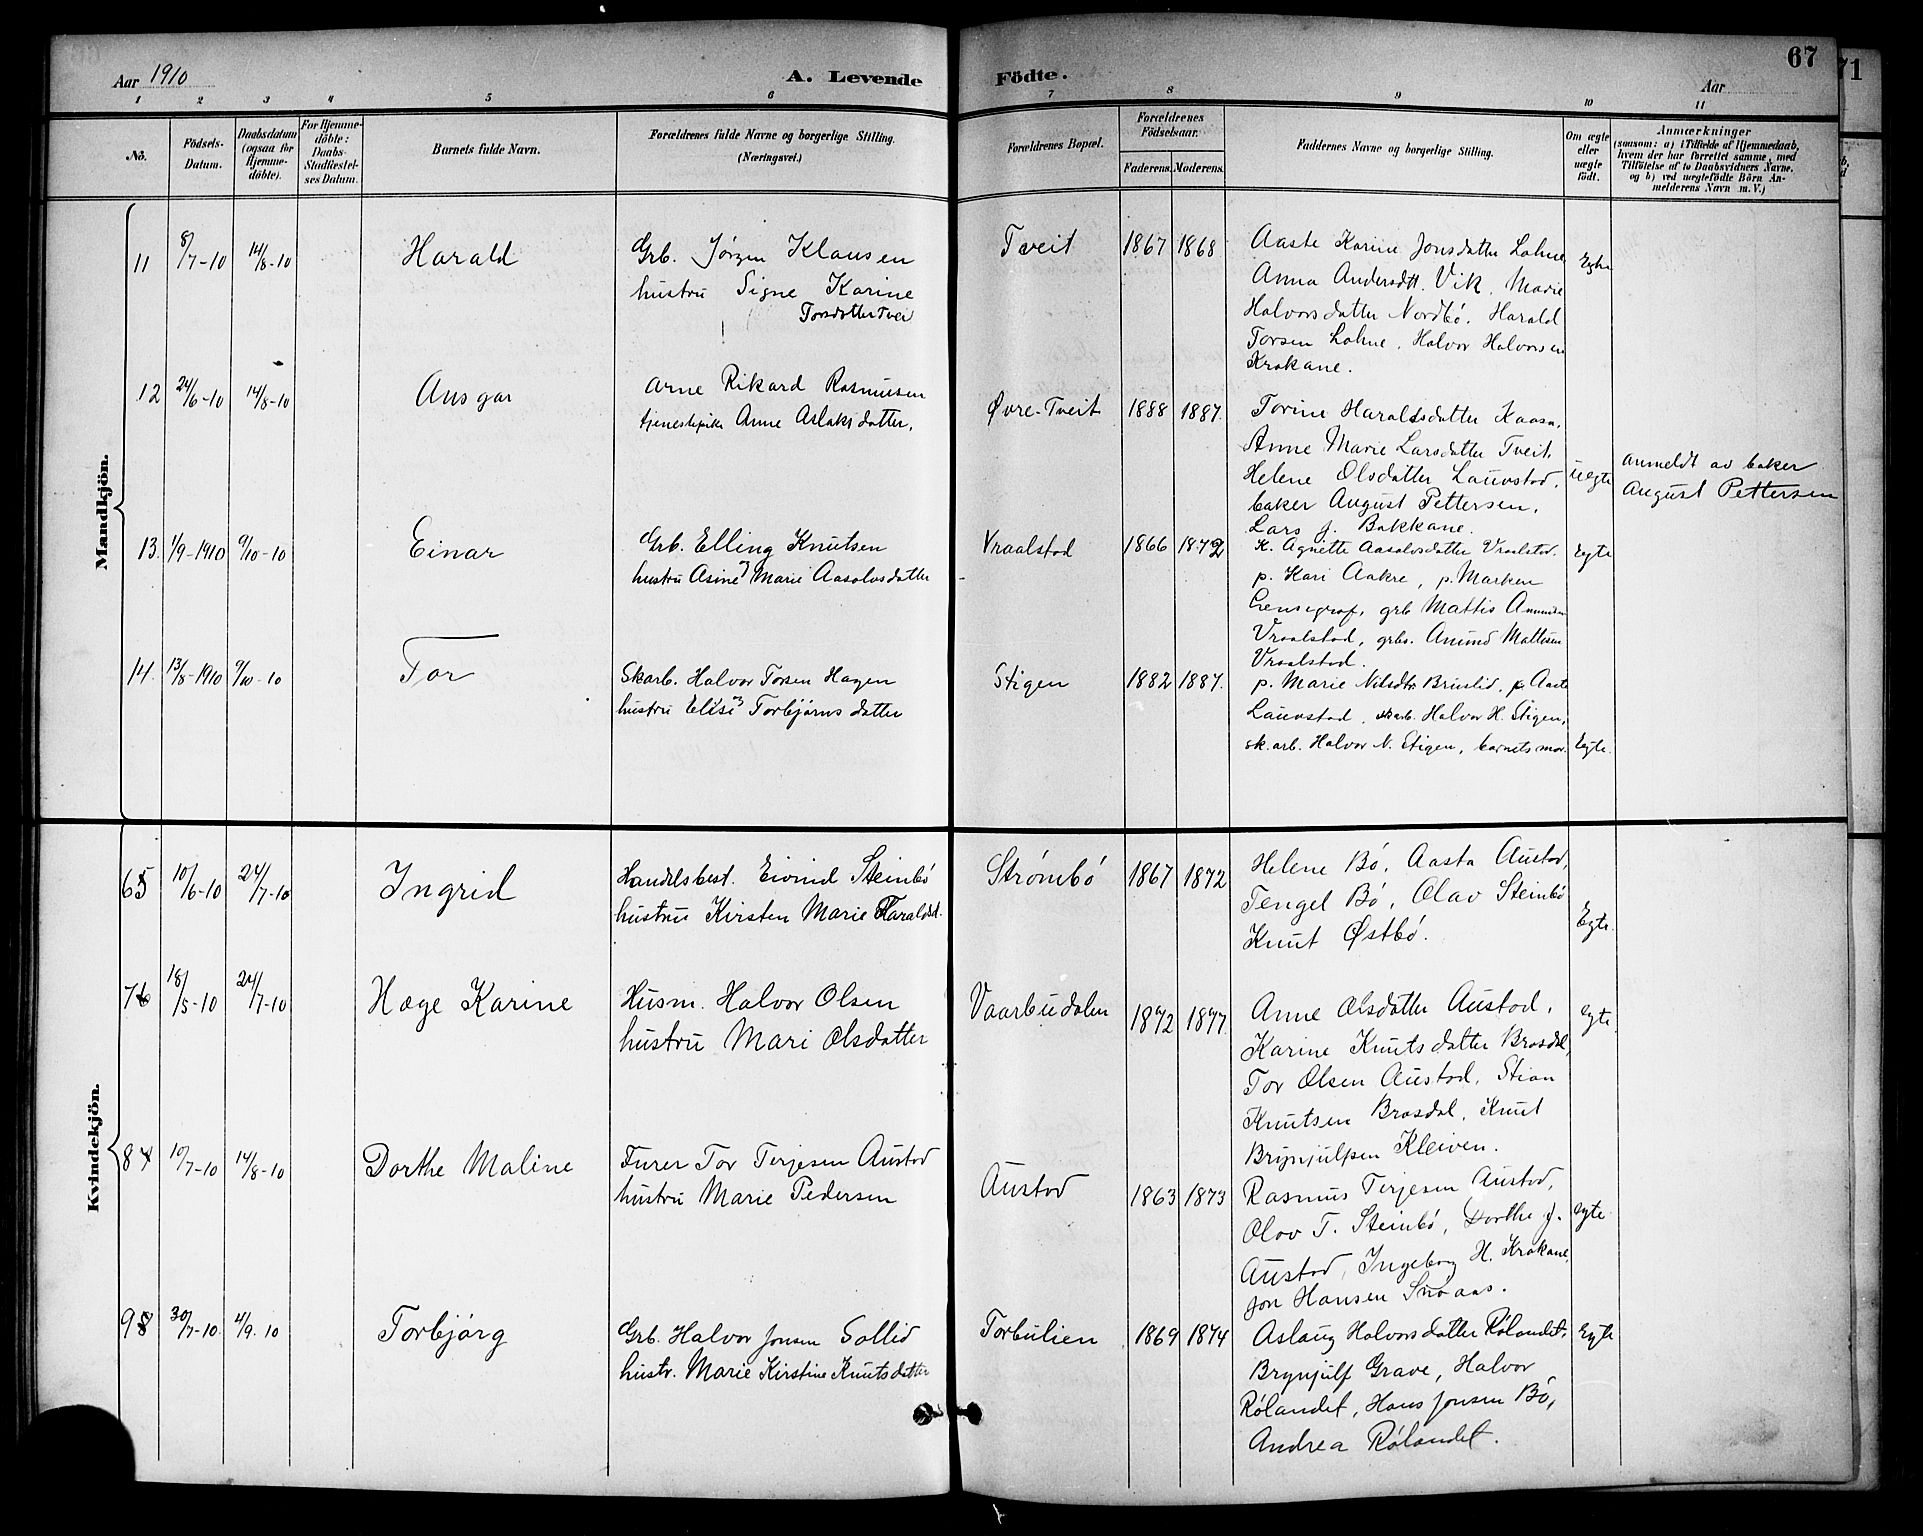 Aar 1910
A. Levende Födte.
67
Aar
71
1 2 3 4 5 6 7 8 9 10 11
No.
Födsels-Datum.
Daabsdatum (ogsaa for Hjemme-döbte).
For Hjemme-döbte: Daabs-Stadfæstel-ses Datum.
Barnets fulde Navn.
Forældrenes fulde Navne og borgerlige Stilling. (Næringsvei.)
Forældrenes Bopæl.
Forældrenes Födselsaar.
Faderens. Moderens.
Faddernes Navne og borgerlige Stilling.
Om ægte eller uægte födt.
Anmærkninger
(saasom: a) i Tilfælde af Hjemmedaab, hvem der har forrettet samme, med Tilföielse af to Daabsvidners Navne, og b) ved uægtefödte Börn An-melderens Navn m. V.)
Mandkjön.
11 8/7-10 14/8-10 Harald
Grb. Jørgen Klausen
hustru Signe Karine
Torsdatter Tvei
Tveit 1867 1868
Aaste Karine Jonsdatter Lohne
Anna Andersdtt. Vik. Marie
Halvorsdatter Nordbö. Harald
Torsen Lohne. Halvor Halvorsen
Krokane.
Egte
12 24/6-10 14/8-10 Ansgar
Arne Rikard Rasmusen
tjenestepike Anne Aslaksdatter.
Øvre-Tveit 1888 1887.
Torine Haraldsdatter Kaasa.
Anne Marie Larsdatter Tveit.
Helene Olsdatter Lauvstad.
baker August Pettersen.
Lars J. Bakkane.
uegte
anmeldt av baker
August Pettersen
13. 1/9-1910 9/10-10 Einar
Grb. Elling Knutsen
hustru Asine Marie Aasolvsdatter
Vraalstad 1866 1872
K. Agnette Aasolvsdatter Vraalstad.
p. Kari Aakre, p. Marken
Lensegrav, grb Mattis Anundsen
Vraalstad, grbs. Anund Mattisen
Vraalstad.
Egte
14. 13/8-1910 9/10-10 Tor
Skarb. Halvor Torsen Hagen
hustru Elise Torbjørnsdatter
Stigen 1882 1887.
p. Marie Nilsdtr Bruslid, p. Aaste
Lauvstad. skarb. Halvor H. Stigen,
sk.arb. Halvor N. Stigen, barnets mor.
Egte.
Kvindekjön.
6 10/6-10 24/7-10 Ingrid
Handelsbest. Eivind Steinbö
hustru Kirsten Marie Haraldsd.
Strømbö 1867 1872
Helene Bö, Aasta Austad,
Tengel Bö, Olav Steinbö
Knut Østbö.
Egte.
7 18/5-10 24/7-10 Hæge Karine
Husm. Halvor Olsen
hustru Mari Olsdatter
Vaarbudalen 1872 1877.
Anne Olsdatter Austad.
Karine Knutsdatter Brosdal,
Tor Olsen Austad, Stian
Knutsen Brosdal, Knut
Brynjulfsen Kleiven.
egte
8 10/7-10 14/8-10 Dorthe Maline
Furer Tor Terjesen Austad
hustru Marie Pedersen
Austad 1863 1873
Rasmus Terjesen Austad,
Olav T. Steinbö, Dorthe J.
Austad, Ingeborg H. Krokane,
Jon Hansen Snoaas.
egte
9 30/7-10. 4/9.10 Torbjörg
Grb. Halvor Jonsen Sollid
hustr. Marie Kirstine Knutsdatter
Torbulien 1869 1874
Aslaug Halvorsdatter Rölandet.
Brynjulf Grave, Halvor
Rölandet, Hans Jonsen Bö,
Andrea Rölandet.
Egte